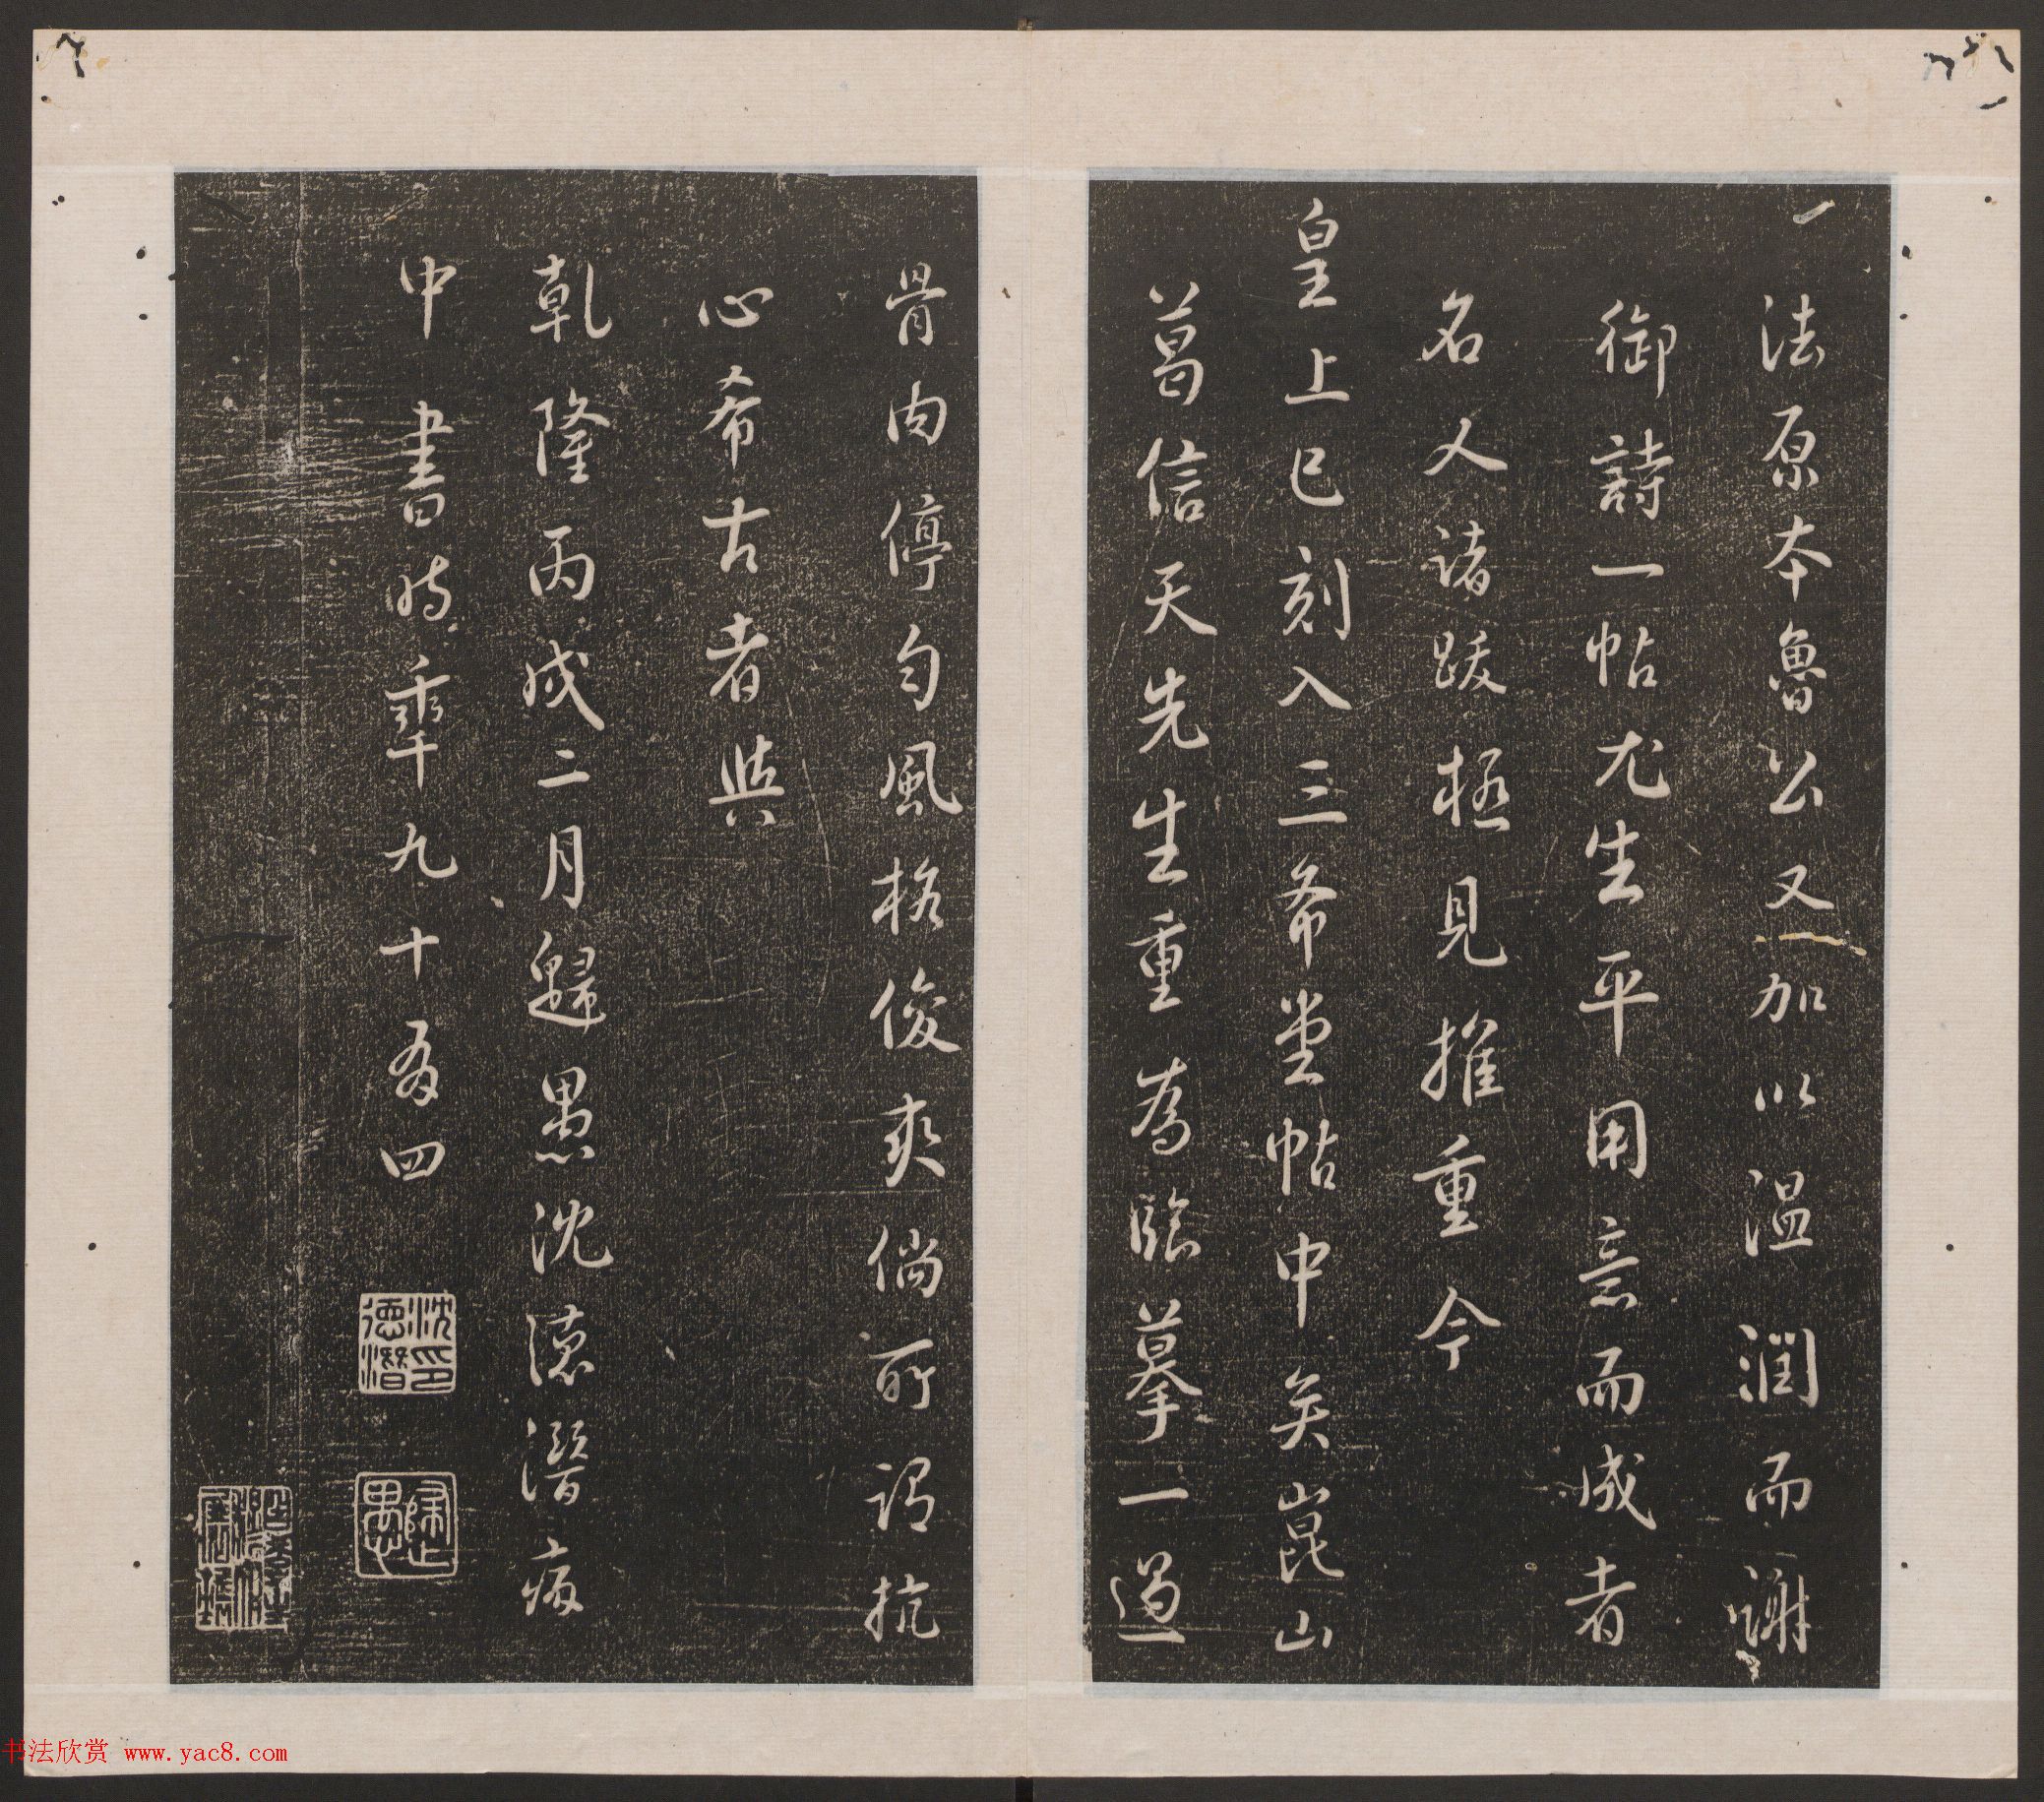 法原本魯公又加以温潤而謝
御詩一帖尤生平用意而成者
名人諸跋極見推重今
皇上已刻入三希堂帖中矣崑山
葛信天先生重為臨摹一過
骨肉停勻風格俊爽倘所謂抗
心希古者與
乾隆丙戌二月歸愚沈德潛病
中書時年九十有四
沈印德潛
歸愚
书法欣赏 www.yac8.com